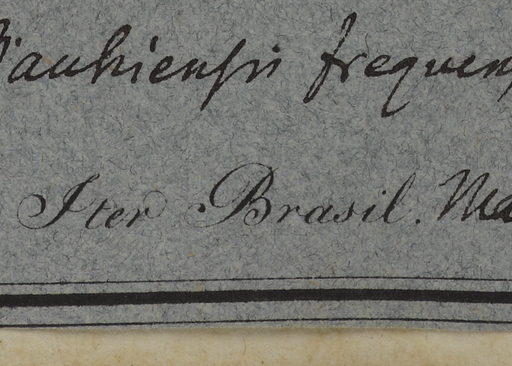 Piauhiensi frequens
Iter Brasil. Ma